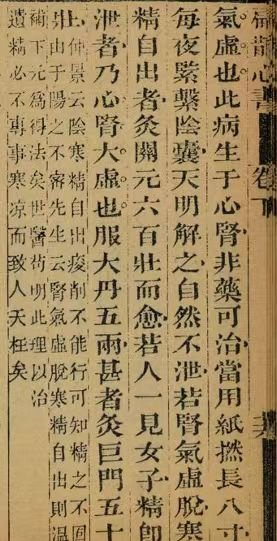 心書 卷下
氣虛也此病生于心腎非藥可治當用紙撚長八寸
每夜緊繫陰囊天明解之自然不泄若腎氣虛脫寒
精自出者灸關元六百壯而愈若人一見女子精即
泄者乃心腎大虛也服大丹五兩甚者灸巨門五十
壯
仲景云陰寒精自出痠削不能行可知精之不固
由于陽之不密先生云腎氣虛脫寒精自出則溫
補下元為得法矣世醫苟明此理以治
遺精必不專事寒涼而致人夭枉矣